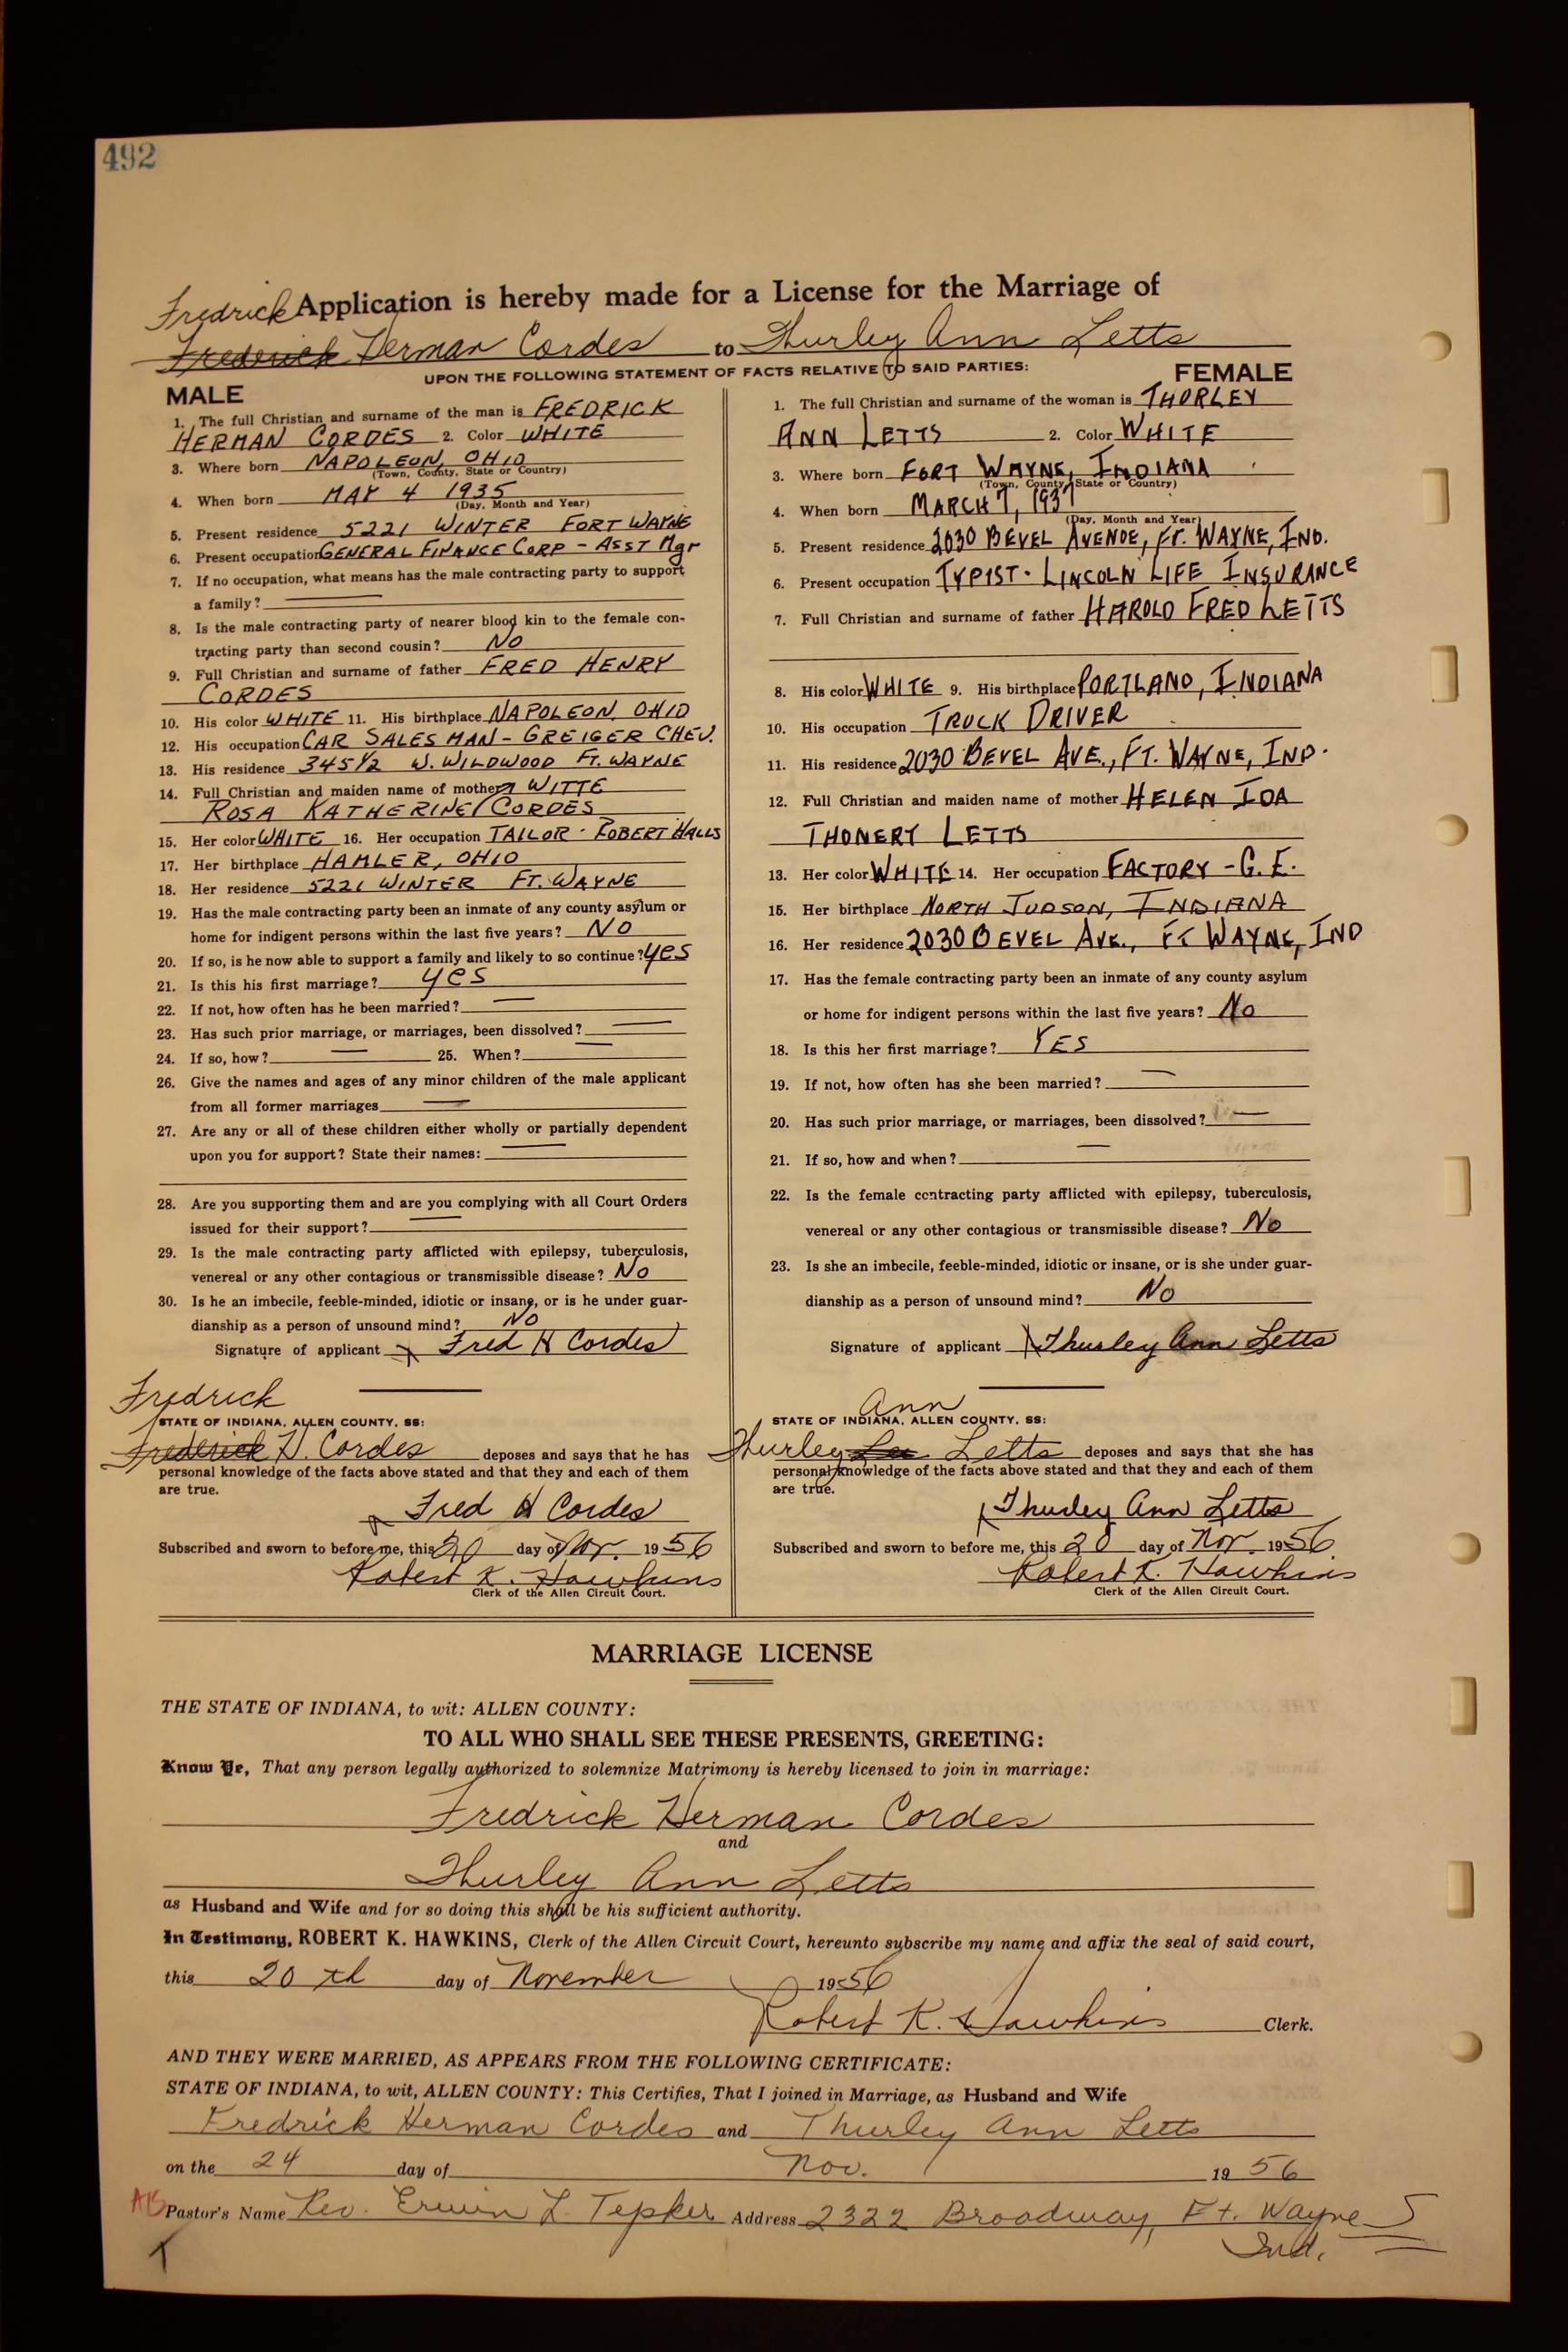 492
Fredrick Application is hereby made for a License for the Marriage of
Frederick Herman Cordes to Thurley Ann Letts
UPON THE FOLLOWING STATEMENT OF FACTS RELATIVE TO SAID PARTIES:
MALE
1. The full Christian and surname of the man is FREDRICK
HERMAN CORDES 2. Color WHITE
3. Where born NAPOLEON, OHIO
(Town, County, State or Country)
4. When born MAY 4 1935
(Day, Month and Year)
5. Present residence 5221 WINTER FORT WAYNE
6. Present occupation GENERAL FINANCE CORP - ASST Mgr
7. If no occupation, what means has the male contracting party to support
a family? —
8. Is the male contracting party of nearer blood kin to the female con-
tracting party than second cousin? NO
9. Full Christian and surname of father FRED HENRY
CORDES
10. His color WHITE 11. His birthplace NAPOLEON, OHIO
12. His occupation CAR SALESMAN - GREIGER CHEV.
13. His residence 345 1/2 W. WILDWOOD FT. WAYNE
14. Full Christian and maiden name of mother WITTE
ROSA KATHERINE CORDES
15. Her color WHITE 16. Her occupation TAILOR - ROBERT HALLS
17. Her birthplace HAMLER, OHIO
18. Her residence 5221 WINTER FT. WAYNE
19. Has the male contracting party been an inmate of any county asylum or
home for indigent persons within the last five years? NO
20. If so, is he now able to support a family and likely to so continue? yes
21. Is this his first marriage? yes
22. If not, how often has he been married? —
23. Has such prior marriage, or marriages, been dissolved? —
24. If so, how? — 25. When? —
26. Give the names and ages of any minor children of the male applicant
from all former marriages —
27. Are any or all of these children either wholly or partially dependent
upon you for support? State their names: —
28. Are you supporting them and are you complying with all Court Orders
issued for their support? —
29. Is the male contracting party afflicted with epilepsy, tuberculosis,
venereal or any other contagious or transmissible disease? No
30. Is he an imbecile, feeble-minded, idiotic or insane, or is he under guar-
dianship as a person of unsound mind? NO
Signature of applicant x Fred H Cordes
Fredrick
STATE OF INDIANA, ALLEN COUNTY, SS:
Frederick H. Cordes deposes and says that he has
personal knowledge of the facts above stated and that they and each of them
are true.
x Fred H Cordes
Subscribed and sworn to before me, this 20 day of Nov. 1956
Robert K. Hawkins
Clerk of the Allen Circuit Court.
FEMALE
1. The full Christian and surname of the woman is THURLEY
ANN LETTS 2. Color WHITE
3. Where born FORT WAYNE, INDIANA
(Town, County, State or Country)
4. When born MARCH 7, 1937
(Day, Month and Year)
5. Present residence 2030 BEVEL AVENUE, FT. WAYNE, IND.
6. Present occupation TYPIST - LINCOLN LIFE INSURANCE
7. Full Christian and surname of father HAROLD FRED LETTS
8. His color WHITE 9. His birthplace PORTLAND, INDIANA
10. His occupation TRUCK DRIVER
11. His residence 2030 BEVEL AVE., FT. WAYNE, IND.
12. Full Christian and maiden name of mother HELEN IDA
THONERT LETTS
13. Her color WHITE 14. Her occupation FACTORY - G. E.
15. Her birthplace NORTH JUDSON, INDIANA
16. Her residence 2030 BEVEL AVE., FT WAYNE, IND
17. Has the female contracting party been an inmate of any county asylum
or home for indigent persons within the last five years? No
18. Is this her first marriage? YES
19. If not, how often has she been married? —
20. Has such prior marriage, or marriages, been dissolved? —
21. If so, how and when? —
22. Is the female contracting party afflicted with epilepsy, tuberculosis,
venereal or any other contagious or transmissible disease? No
23. Is she an imbecile, feeble-minded, idiotic or insane, or is she under guar-
dianship as a person of unsound mind? No
Signature of applicant x Thurley Ann Letts
Ann
STATE OF INDIANA, ALLEN COUNTY, SS:
Thurley Lee Letts deposes and says that she has
personal knowledge of the facts above stated and that they and each of them
are true.
x Thurley Ann Letts
Subscribed and sworn to before me, this 20 day of Nov. 1956
Robert K. Hawkins
Clerk of the Allen Circuit Court.
MARRIAGE LICENSE
THE STATE OF INDIANA, to wit: ALLEN COUNTY:
TO ALL WHO SHALL SEE THESE PRESENTS, GREETING:
Know Ye, That any person legally authorized to solemnize Matrimony is hereby licensed to join in marriage:
Fredrick Herman Cordes
and
Thurley Ann Letts
as Husband and Wife and for so doing this shall be his sufficient authority.
In Testimony, ROBERT K. HAWKINS, Clerk of the Allen Circuit Court, hereunto subscribe my name and affix the seal of said court,
this 20 th day of November 1956
Robert K. Hawkins Clerk.
AND THEY WERE MARRIED, AS APPEARS FROM THE FOLLOWING CERTIFICATE:
STATE OF INDIANA, to wit, ALLEN COUNTY: This Certifies, That I joined in Marriage, as Husband and Wife
Fredrick Herman Cordes and Thurley Ann Letts
on the 24 day of Nov. 1956
Pastor's Name Rev. Erwin L. Tepker Address 2322 Broadway, Ft. Wayne
Ind.